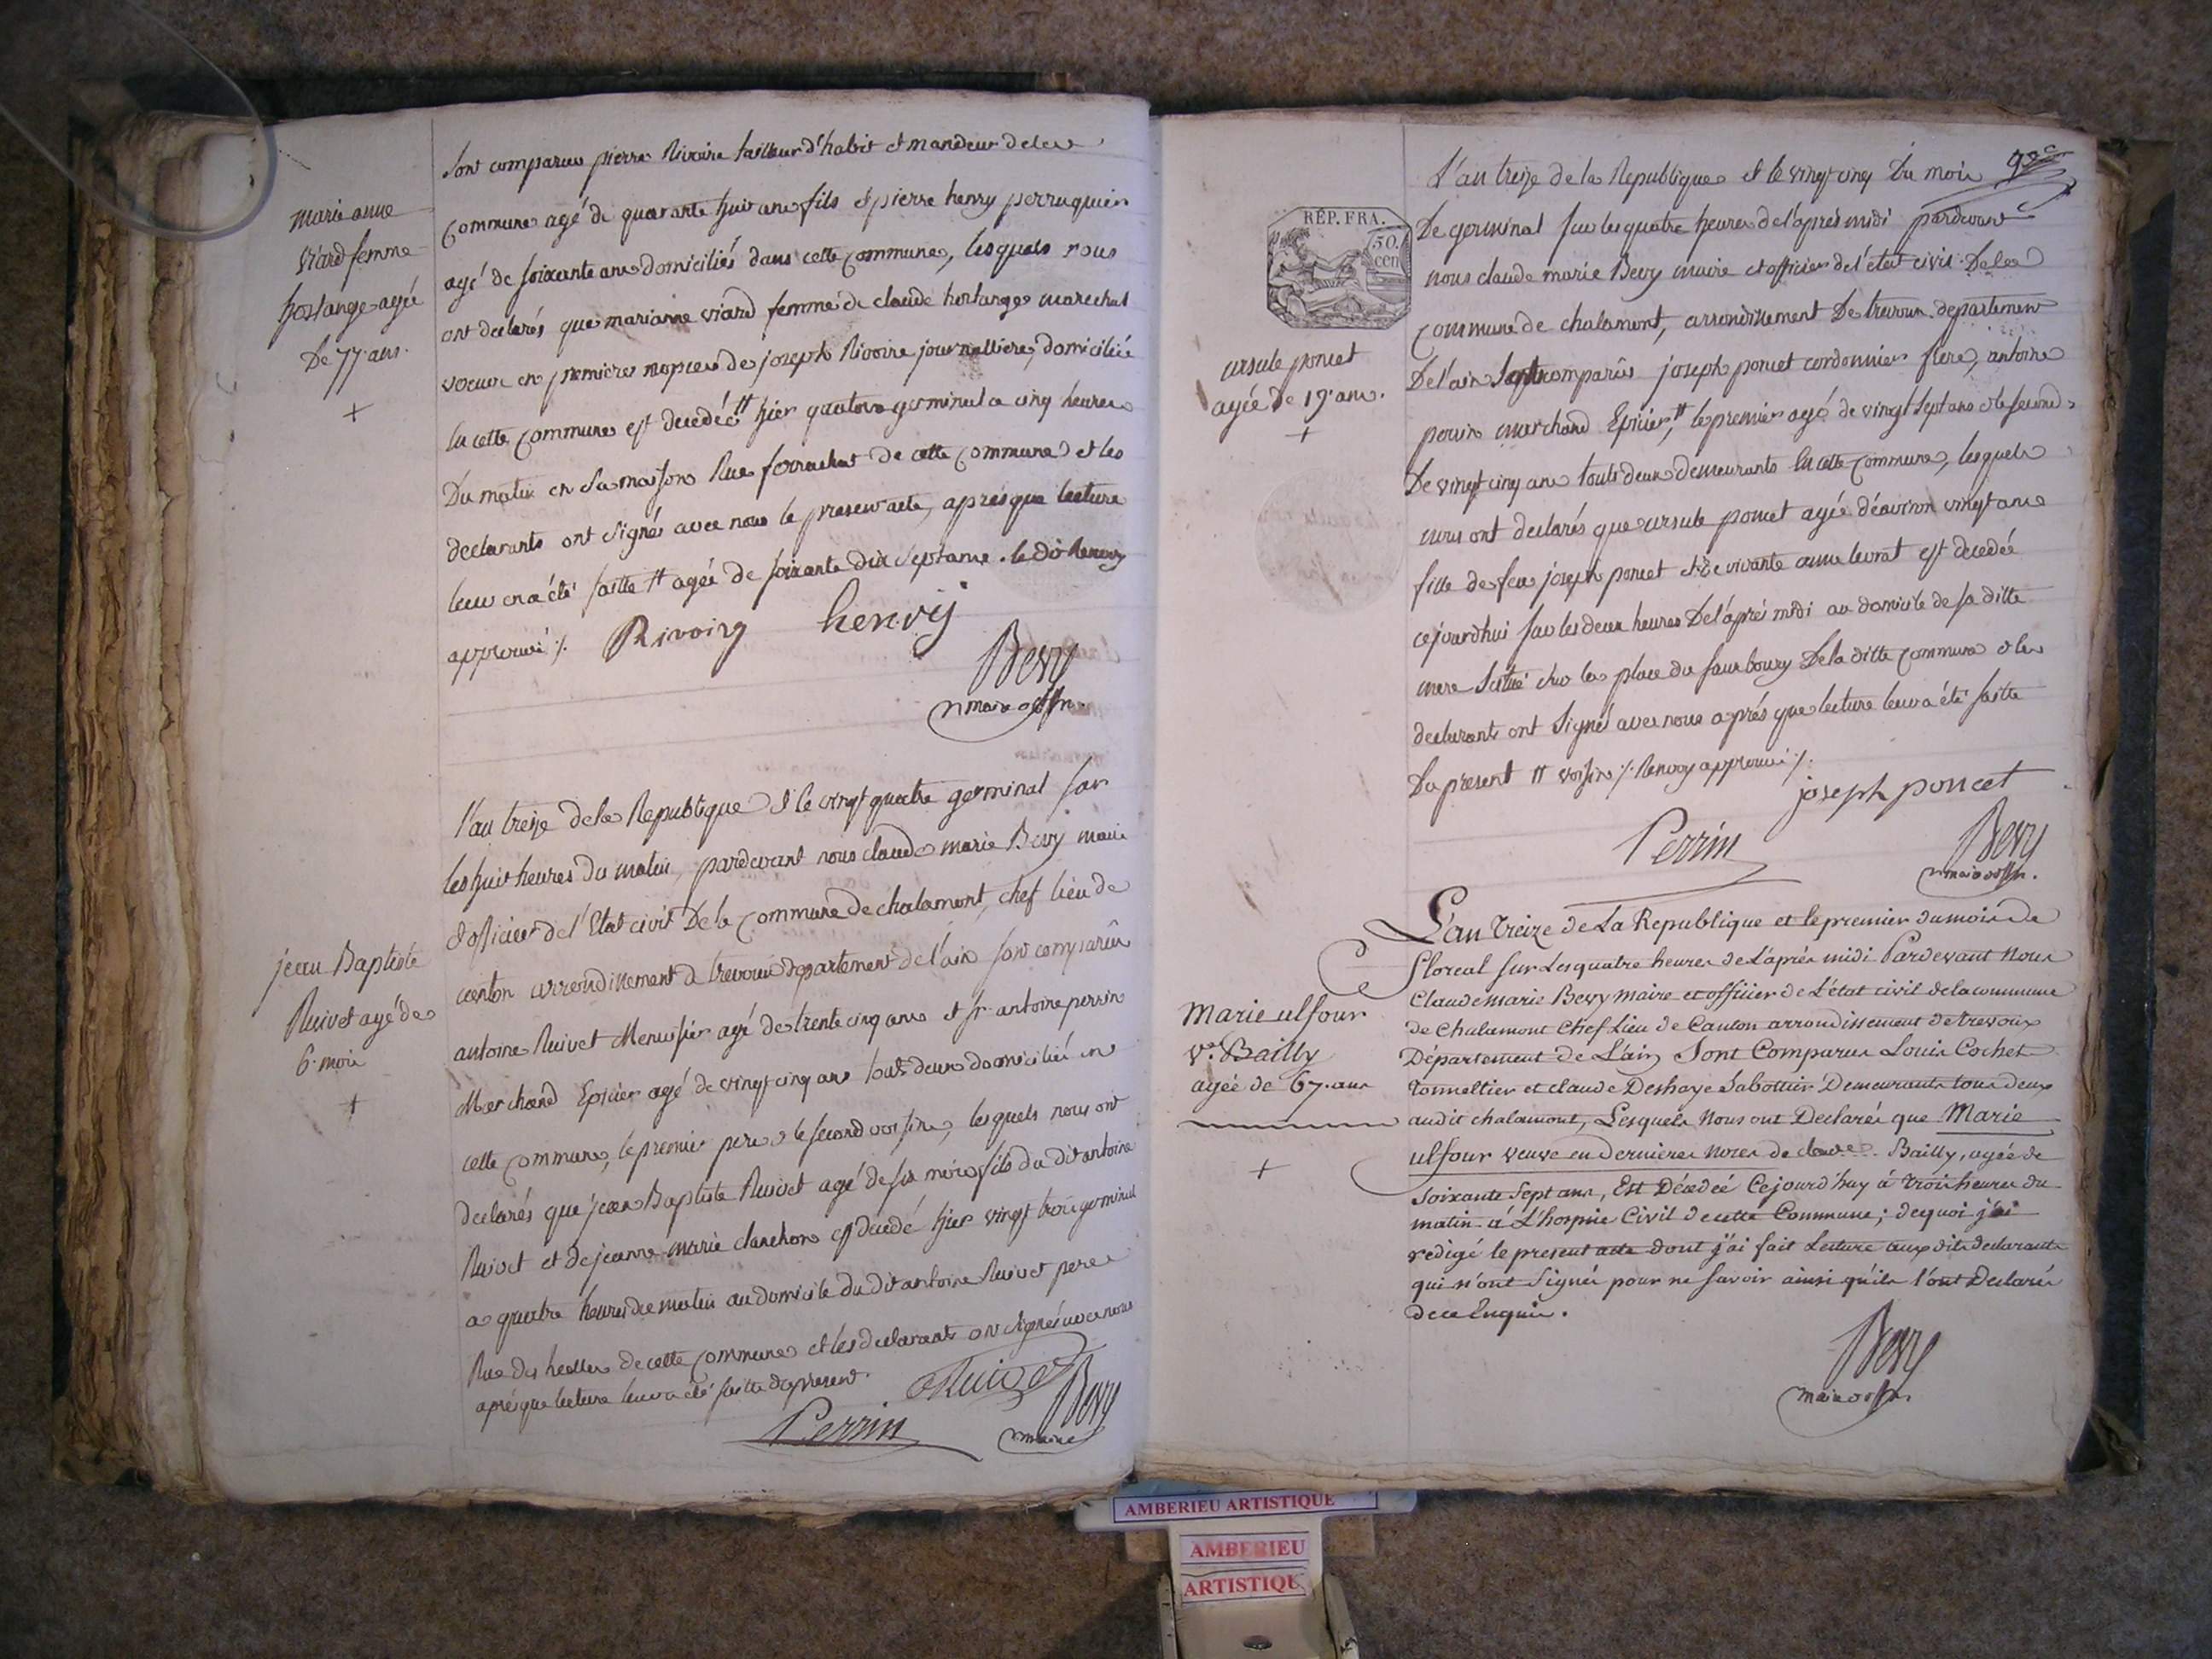 marie anne
viard femme
hortange agée
De 77 ans.
+
sont comparus pierre Rivoire tailleur d'habit et mandeur de la
commune agé de quarante huit ans fils et pierre henry perruquier
agé de soixante ans domiciliés dans cette commune, lesquels nous
ont declarés que marianne viard femme de claude hortange marechal
veuve en premieres nopces de joseph Rivoire journalliere, domiciliée
en cette commune est decedée hier quatorze germinal a cinq heures
Du matin en sa maison Rue de cette commune et les
declarants ont signés avec nous le present acte, après que lecture
leur en a été faitte agée de soixante dix sept ans. le dit Renvoy
approuvé ./. Rivoire henry
Bevy
maire off.
jean Baptiste
Ruivet agé de
6. mois
+
l'an treize de la Republique et le vingt quatre germinal sur
les huit heures du matin, pardevant nous claude marie Bevy maire
et officier de l'Etat civil De la commune de chalamont, chef lieu de
canton arrondissement de trevoux departement de l'ain sont comparûs
antoine Ruivet Menuisier agé de trente cinq ans et sr. antoine perrin
Marchand Epicier agé de vingt cinq ans touts deux domiciliés en
cette commune, le premier pere et le second voisin, lesquels nous ont
declarés que jean Baptiste Ruivet agé de six mois fils du dit antoine
Ruivet et de jeanne marie clanchon est decedé hier vingt trois germinal
a quatre heures du matin au domicile du dit antoine Ruivet pere
Rue des halles de cette commune et les declarants ont signés avec nous
après que lecture leur a été faitte du present.
Ruivet
Bevy
Perrin
maire
98e
REP. FRA.
50.
cen
ursule poncet
agée de 19 ans.
+
l'an treize de la Republique et le vingt cinq Du mois
De germinal sur les quatre heures de l'après midi pardevant
nous claude marie Bevy maire et officier de l'état civil De la
commune de chalamont, arrondissement De trevoux departement
De l'ain sont comparûs joseph poncet cordonnier frere, antoine
perrin marchand Epicier, le premier agé de vingt sept ans et le second
De vingt cinq ans touts deux demeurants en cette commune, lesquels
nous ont declarés que ursule poncet agée d'environ vingt ans
fille de feu joseph poncet et de vivante anne levrat est decedée
cejourdhui sur les deux heures De l'après midi au domicile de sa ditte
mere situé sur la place du fauxbourg De la ditte commune et les
declarants ont signé avec nous après que lecture leur a été faitte
Du present voisin ./. Renvoy approuvé ./.
joseph poncet
Perrin
Bevy
maire off.
Marie ulfour
Ve. Bailly
agée de 67. ans
+
L'an treize de La Republique et le premier du mois de
floreal sur Les quatre heures de L'après midi Pardevant Nous
Claude Marie Bevy maire et officier de L'état civil de la commune
de Chalamont Chef Lieu de Canton arrondissement de trevoux
Département de L'ain Sont Comparus Louis Cochet
tonneltier et claude Deshaye Sabottier Demeurants tous deux
audit chalamont, Lesquels Nous ont Declarés que Marie
ulfour veuve en Dernieres Noces de claude Bailly, agée de
soixante sept ans, Est Décedeé Cejourd'huy á trois heures du
matin á L'hospice Civil de cette Commune; dequoi j'ai
redigé le present acte dont j'ai fait Lecture aux dits declarants
qui n'ont signés pour ne savoir ainsi qu'ils l'ont Declarés
de ce Enquis.
Bevy
maire off.
AMBERIEU ARTISTIQUE
AMBERIEU
ARTISTIQU